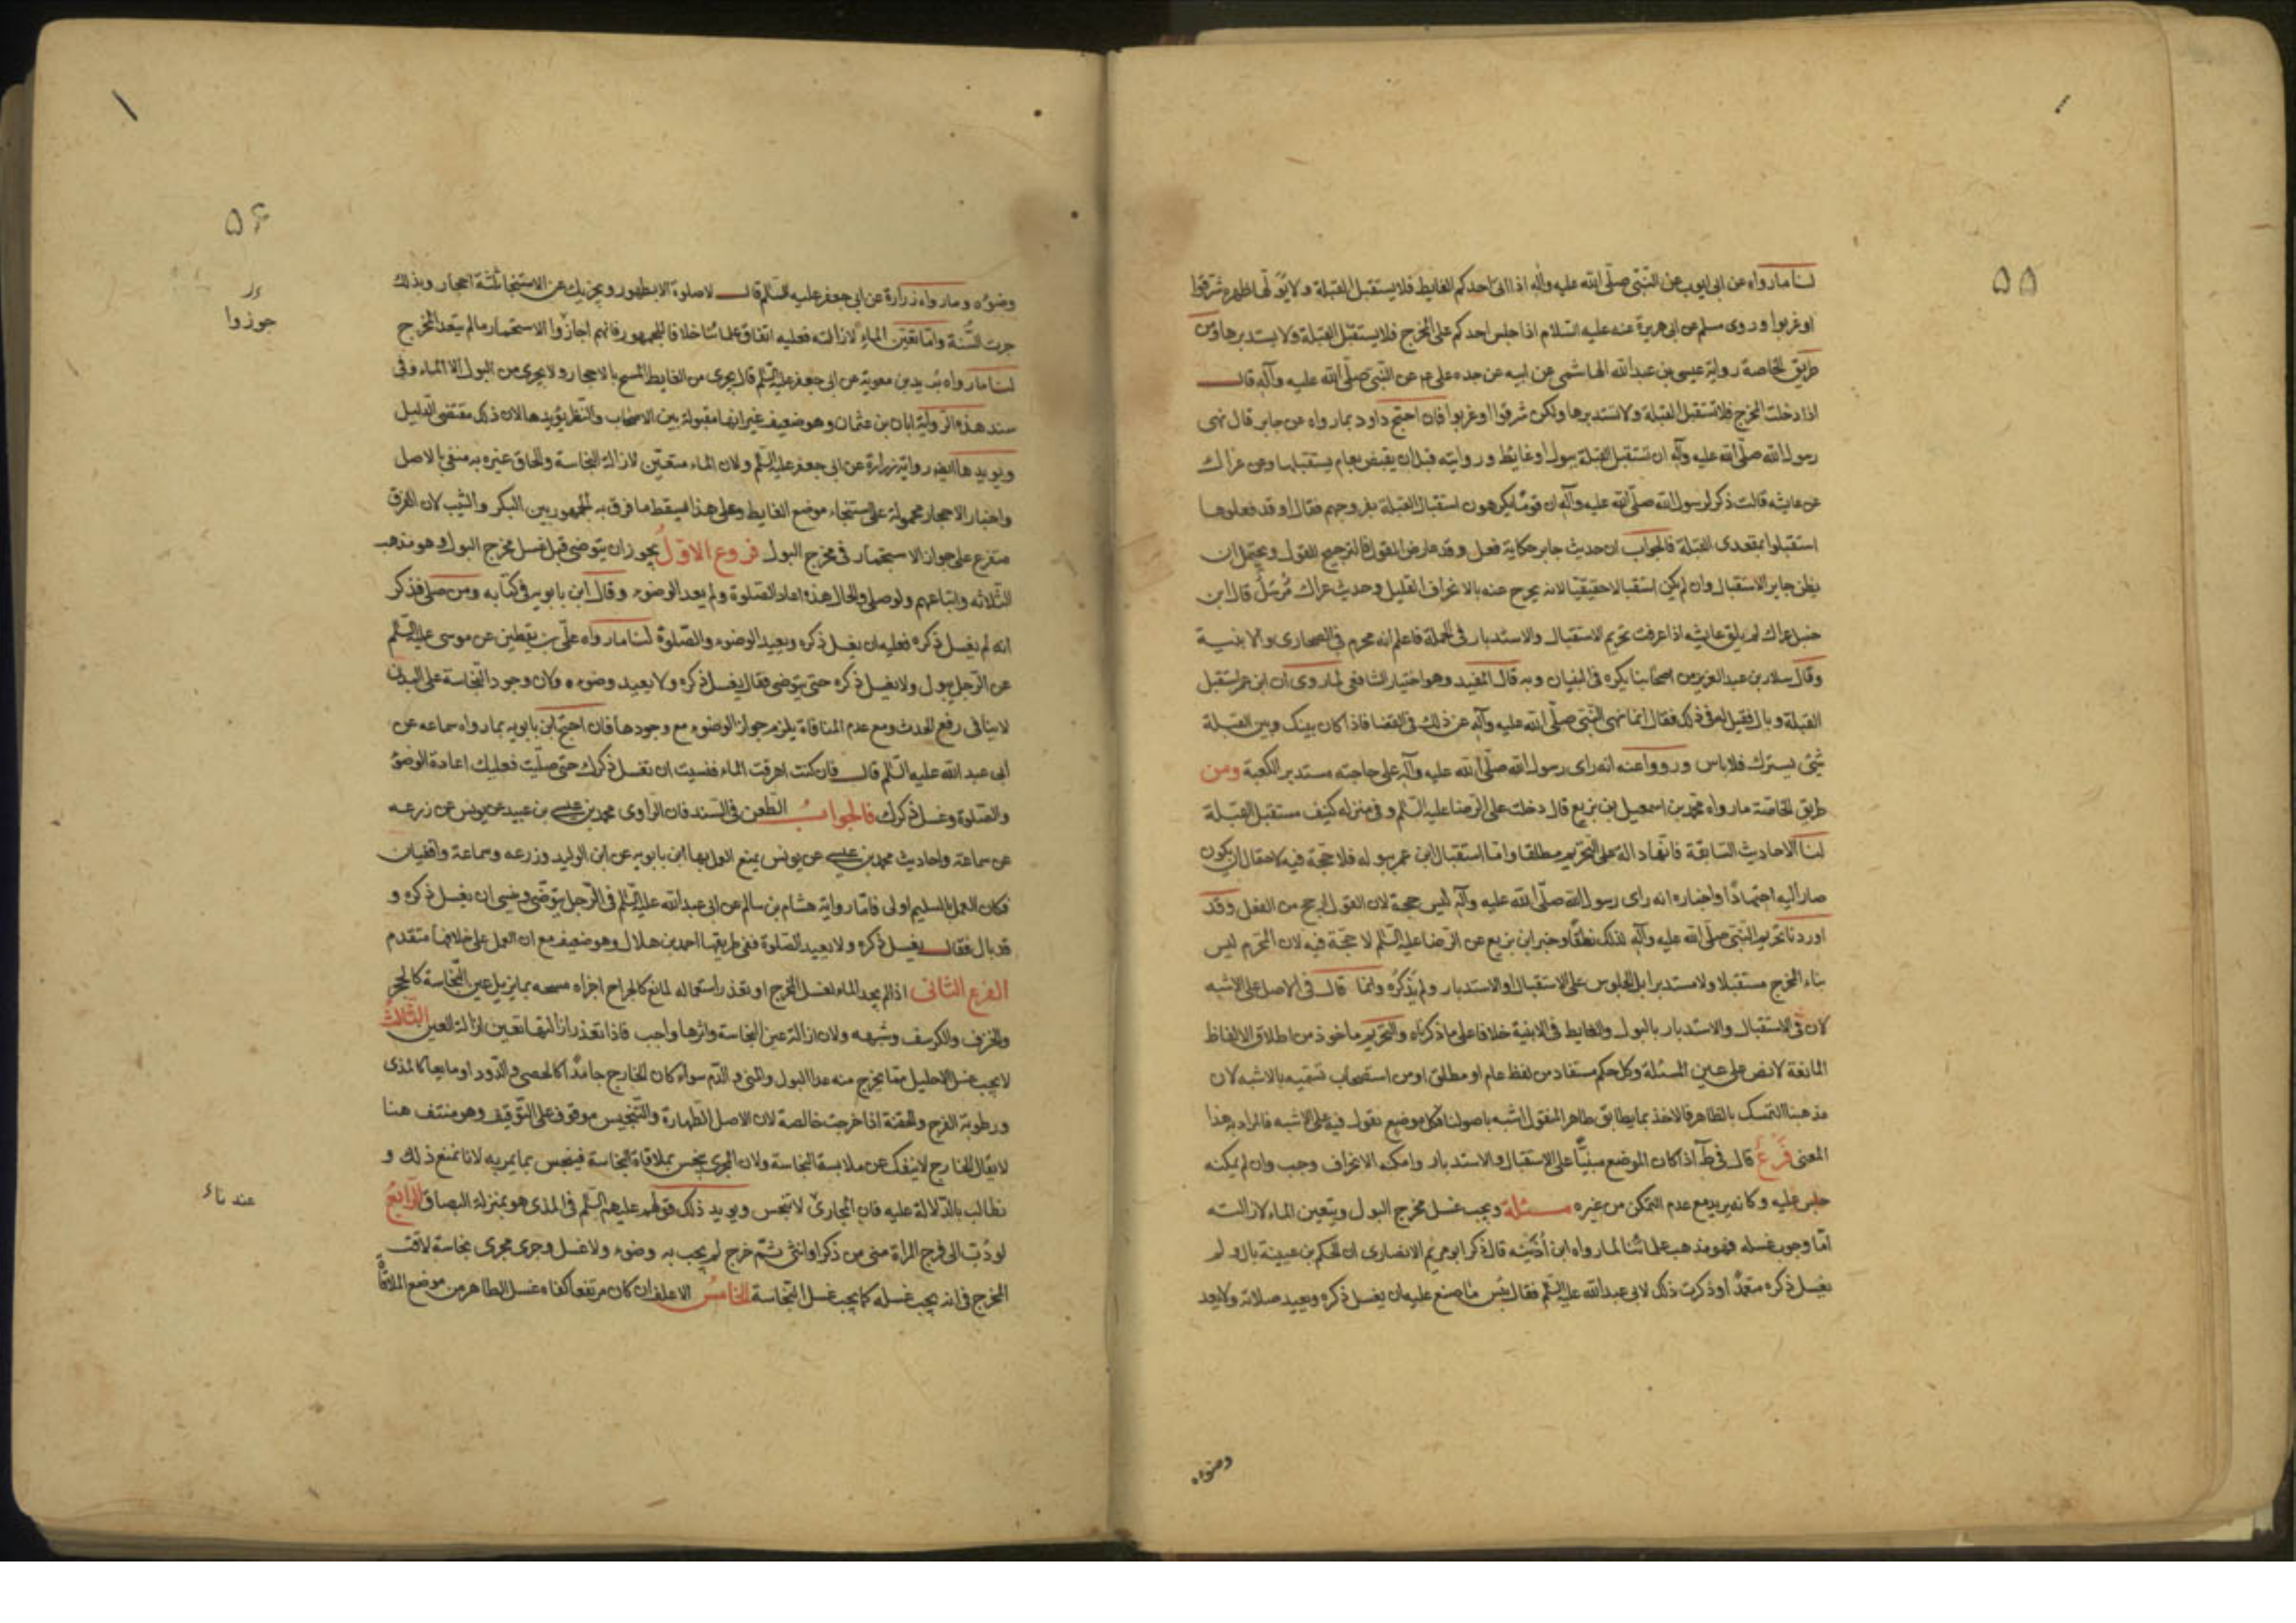 ٥٥
لنا ما رواه عن ابى ايوب عن النبى صلى الله عليه وآله اذا اتى احدكم الغايط فلا يستقبل القبلة ولا يولها ظهره شرقوا
او غربوا وروى مسلم عن ابى هريرة عنه عليه السلام اذا جلس احدكم على المخرج فلا يستقبل القبلة ولا يستدبرها ومن
طريق الخاصة رواية عيسى بن عبدالله الهاشمى عن ابيه عن جده على ع عن النبى صلى الله عليه وآله قال
اذا دخلت المخرج فلا تستقبل القبلة ولا تستدبرها ولكن شرقوا او غربوا فان احتج داود بما رواه عن جابر قال نهى
رسول الله صلى الله عليه وآله ان نستقبل القبلة ببول او غايط ورايته قبل ان يقبض بعام يستقبلها وعن عراك
عن عايشه قالت ذكر لرسول الله صلى الله عليه وآله ان قوما يكرهون استقبال القبلة بفروجهم فقال او قد فعلوها
استقبلوا بمقعدى القبلة فالجواب ان حديث جابر حكاية فعل وقد عارض القول فالترجيح للقول ويحتمل ان
يظن جابر الاستقبال وان لم يكن استقبالا حقيقيا لانه يخرج عنه بالانحراف القليل وحديث عراك مرسل قال ابن
حنبل عراك لم يلق عايشه اذا عرفت تحريم الاستقبال والاستدبار فى الجملة فاعلم انه محرم فى الصحارى والابنية
وقال سلار بن عبد العزيز من اصحابنا يكره فى البنيان وبه قال المفيد وهو اختيار الشافعى لما روى ان ابن عمر استقبل
القبلة وبال فقيل له فى ذلك فقال انما نهى النبى صلى الله عليه وآله عن ذلك فى الفضا فاذا كان بينك وبين القبلة
شئ يسترك فلا باس ورووا عنه انه راى رسول الله صلى الله عليه وآله على حاجته مستدبر الكعبة ومن
طريق الخاصة ما رواه محمد بن اسمعيل بن بزيع قال دخلت على الرضا عليه السلم وفى منزله كنيف مستقبل القبلة
لنا الاحاديث السابقة فانها دالة على التحريم مطلقا واما استقبال ابن عمر ببوله فلا حجة فيه لاحتمال ان يكون
صار اليه اجتهادا واخباره انه راى رسول الله صلى الله عليه وآله ليس حجة لان القول ارجح من الفعل وقد
اوردنا تحريم النبى صلى الله عليه وآله لذلك نطقا وخبر ابن بزيع عن الرضا عليه السلم لا حجة فيه لان المحرم ليس
بناء المخرج مستقبلا ولا مستدبرا بل الجلوس على الاستقبال او الاستدبار ولم يذكره وانما قال فى الاصل على الاشبه
لان فى الاستقبال والاستدبار بالبول والغايط فى الابنية خلافا على ما ذكرناه والتحريم ماخوذ من اطلاق الالفاظ
المانعة لا نص على عين المسئلة وكل حكم مستفاد من لفظ عام او مطلق او من استصحاب نسميه بالاشبه لان
مذهبنا التمسك بالظاهر فالاخذ بما يطابق ظاهر المنقول اشبه باصولنا فكل موضع نقول فيه على الاشبه فالمراد به هذا
المعنى فرع قال فى ط اذا كان الموضع مبنيا على الاستقبال والاستدبار وامكنه الانحراف وجب وان لم يمكنه
جلس عليه وكانه يريد مع عدم التمكن من غيره مسئلة ويجب غسل مخرج البول ويتعين الماء لازالته
اما وجوب غسله فهو مذهب علمائنا لما رواه ابن اذينه قال ذكر ابو مريم الانصارى ان الحكم بن عيينة بال ولم
يغسل ذكره متعمدا وذكرت ذلك لابى عبدالله عليه السلم فقال بئس ما صنع عليه ان يغسل ذكره ويعيد صلاته ولا يعيد
وضوءه
٥٦
وضوءه وما رواه زرارة عن ابى جعفر عليه السلم قال لا صلوة الا بطهور ويجزيك عن الاستنجا ثلثة احجار وبذلك
جرت السنة واما تعين الماء لازالته فعليه اتفاق علمائنا خلافا للجمهور فانهم اجازوا الاستجمار ما لم يتعد المخرج
جوزوا
لنا ما رواه بريد بن معوية عن ابى جعفر عليه السلم قال يجزى من الغايط المسح بالاحجار ولا يجزى من البول الا الماء وفى
سند هذه الرواية ابان بن عثمان وهو ضعيف غير انها مقبولة بين الاصحاب والنظر يؤيدها لان ذلك مقتضى الدليل
ويويدها ايضا رواية زرارة عن ابى جعفر عليه السلم ولان الماء متعين لازالة النجاسة والحاق غيره به منفى بالاصل
واخبار الاحجار محمولة على استنجاء موضع الغايط وعلى هذا يسقط ما فرق به الجمهور بين البكر والثيب لان الفرق
متفرع على جواز الاستجمار فى مخرج البول فروع الاول يجوز ان يتوضى قبل غسل مخرج البول وهو مذهب
الثلاثه واتباعهم ولو صلى والحال هذه اعاد الصلوة ولم يعد الوضوء وقال ابن بابويه فى كتابه ومن صلى فذكر
انه لم يغسل ذكره فعليه ان يغسل ذكره ويعيد الوضوء والصلوة لنا ما رواه على بن يقطين عن موسى عليه السلم
عن الرجل يبول ولا يغسل ذكره حتى يتوضى فقال يغسل ذكره ولا يعيد وضوءه ولان وجود النجاسة على البدن
لا ينافى رفع الحدث ومع عدم المنافاة يلزم جواز الوضوء مع وجودها فان احتج ابن بابويه بما رواه سماعه عن
ابى عبد الله عليه السلم قال فان كنت اهرقت الماء فنسيت ان تغسل ذكرك حتى صليت فعليك اعادة الوضوء
والصلوة وغسل ذكرك فالجواب الطعن فى السند فان الراوى محمد بن عيسى بن عبيد عن يونس عن زرعه
عن سماعة واحاديث محمد بن عيسى عن يونس يمنع العمل بها ابن بابويه عن ابن الوليد وزرعه وسماعة واقفيان
فكان العمل بالسليم اولى فاما رواية هشام بن سالم عن ابى عبدالله عليه السلم فى الرجل يتوضى ونسى ان يغسل ذكره و
قد بال فقال يغسل ذكره ولا يعيد الصلوة ففى طريقها احمد بن هلال وهو ضعيف مع ان العمل على خلافها متقدم
الفرع الثانى اذا لم يجد الماء لغسل المخرج او تعذر استعماله لمانع كالجراح اجزاه مسحه بما يزيل عين النجاسة كالحجر
والخزف والكرسف وشبهه ولان ازالة عين النجاسة واثرها واجب فاذا تعذر ازالتهما تعين ازالة العين الثالث
لا يجب غسل الاحليل مما يخرج منه عدا البول والمنى والدم سواء كان الخارج جامدا كالحصى والدود او مايعا كالمذى
ورطوبة الفرج والحقنة اذا خرجت خالصة لان الاصل الطهارة والتنجيس موقوف على التوقيف وهو منتف هنا
لا يقال الخارج لا ينفك عن ملابسة النجاسة ولان المجرى ينجس بملاقاة النجاسة فينجس بما يمر به لانا نمنع ذلك و
نطالب بالدلالة عليه فان المجارى لا تنجس ويويد ذلك قولهم عليهم السلم فى المذى هو بمنزلة البصاق الرابع
لو دب الى فرج المراة منى من ذكر او انثى ثم خرج لم يجب به وضوء ولا غسل وجرى مجرى نجاسة لاقت
المخرج فى انه يجب غسله كما يجب غسل النجاسة الخامس الاغلف ان كان مرتفعا كفاه غسل الظاهر من موضع الملاقاة